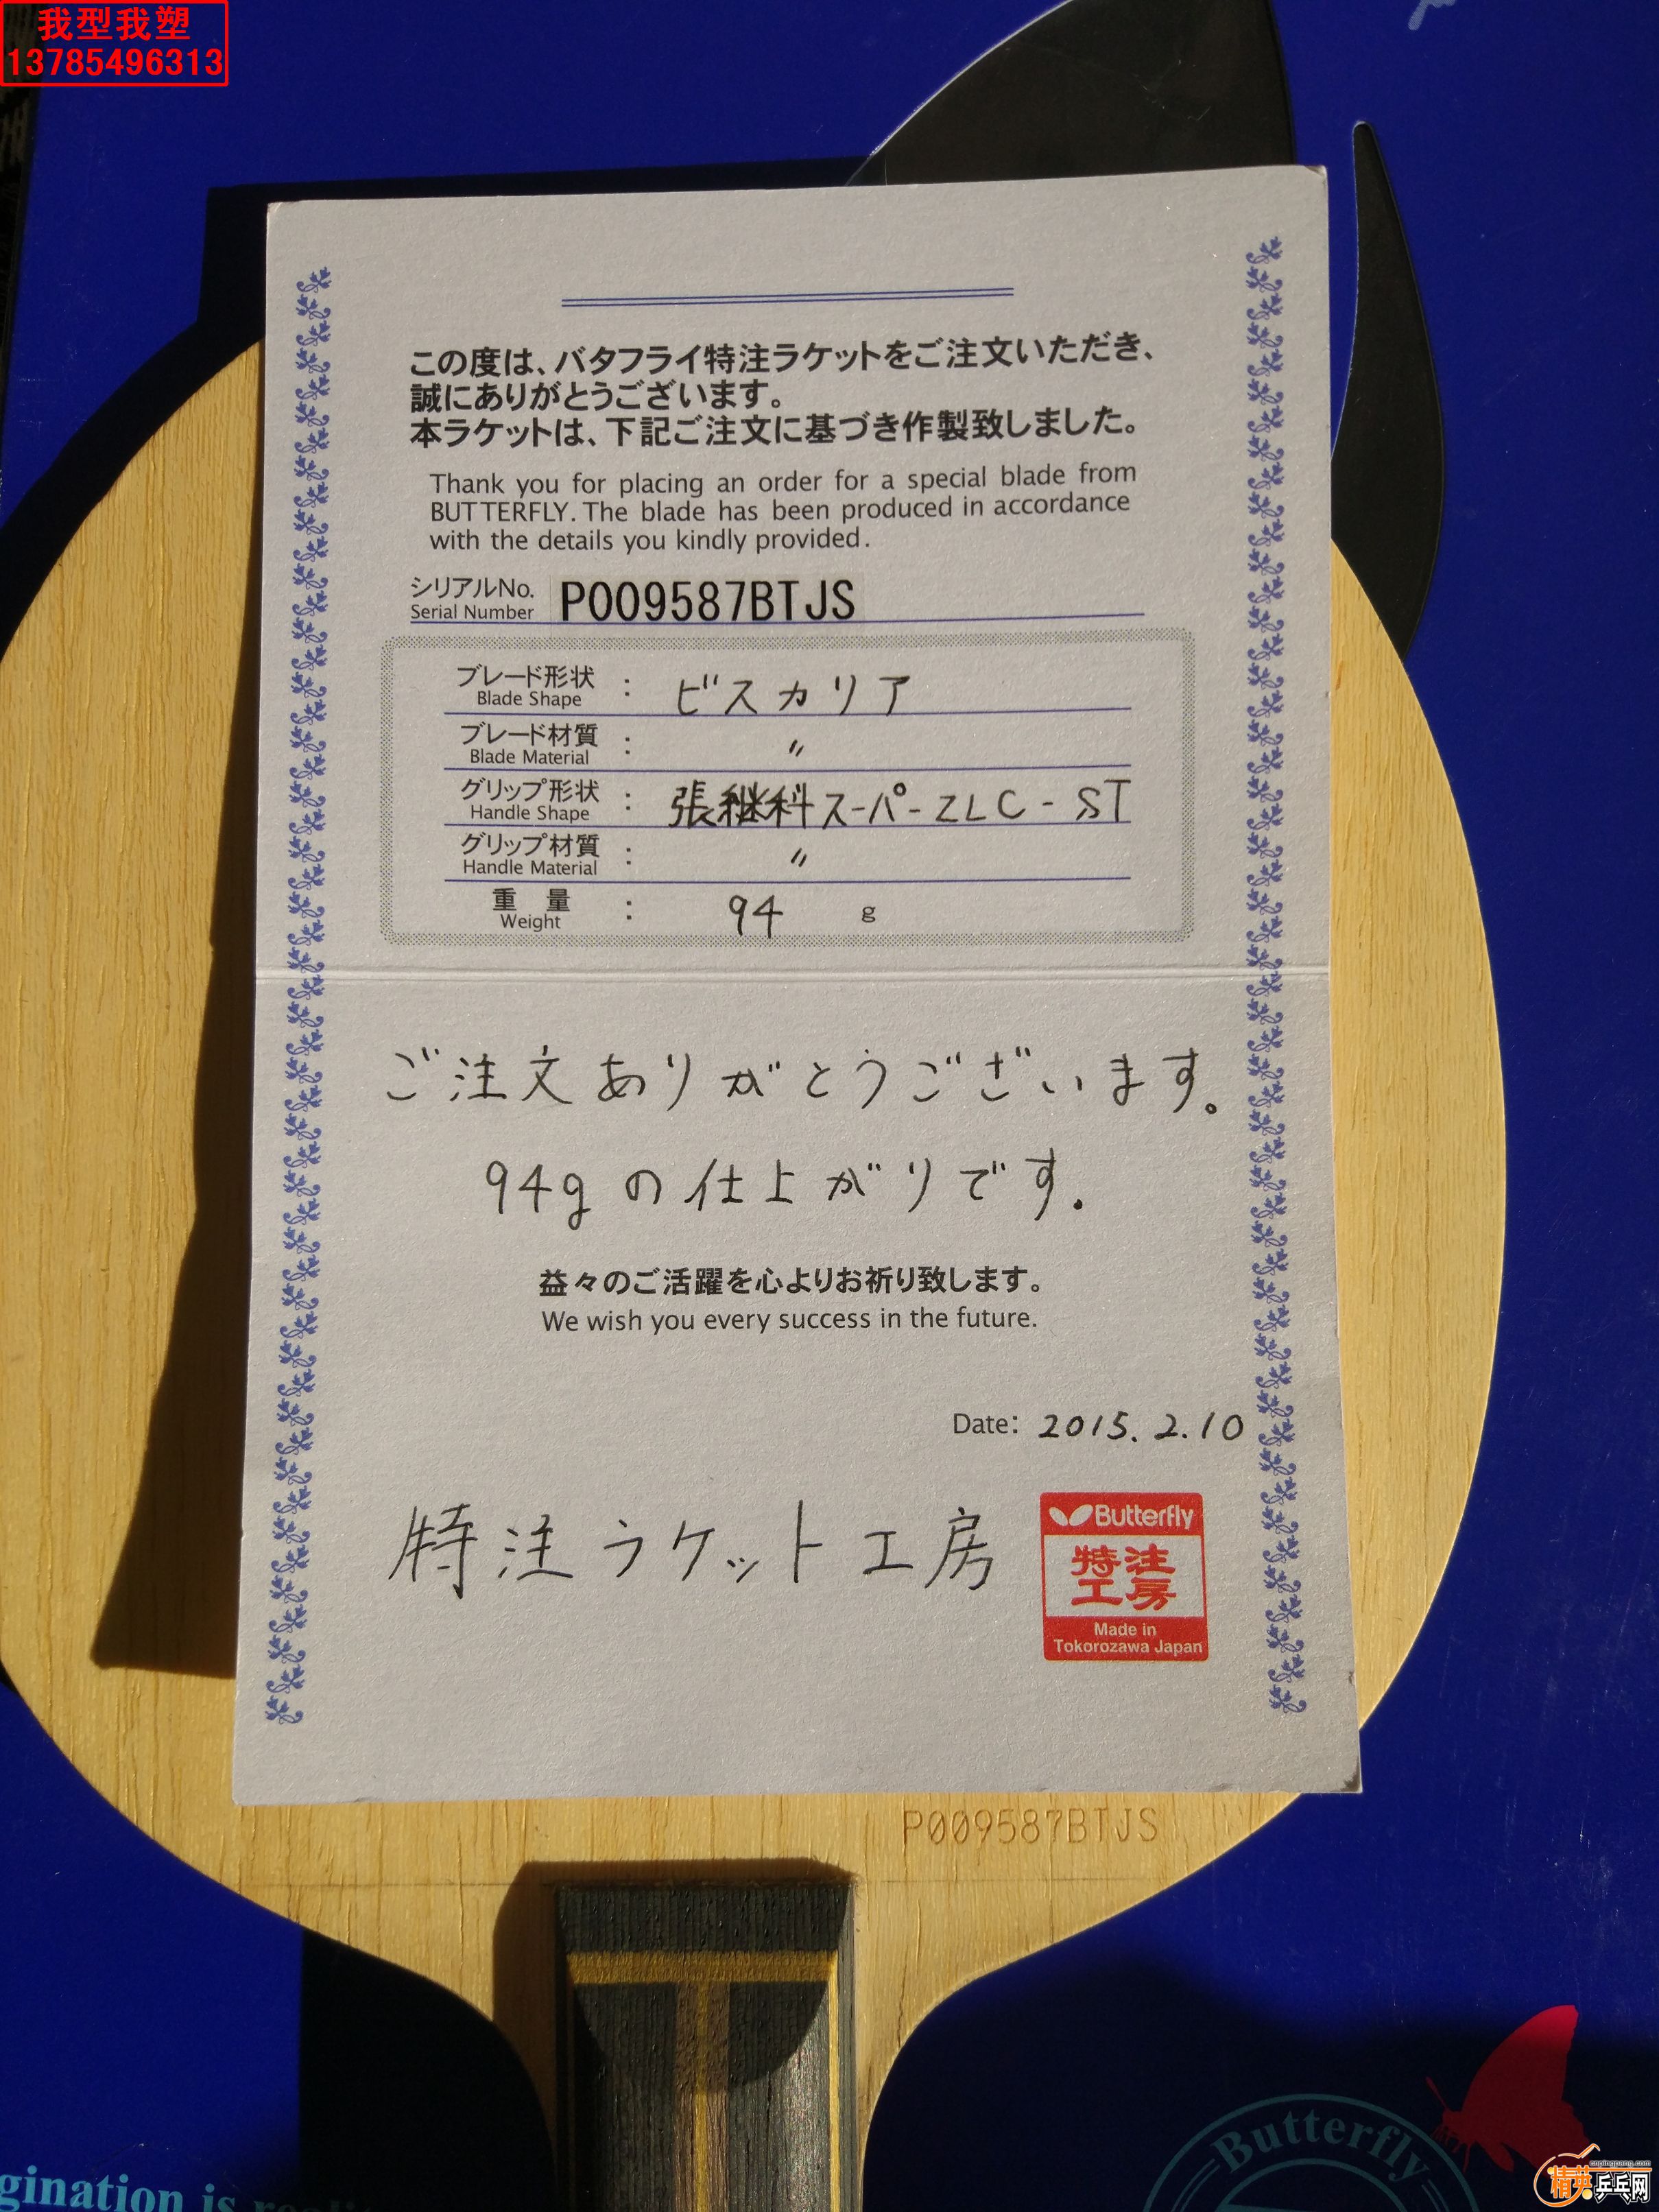 我型我塑
13785496313
この度は、バタフライ特注ラケットをご注文いただき、
誠にありがとうございます。
本ラケットは、下記ご注文に基づき作製致しました。
Thank you for placing an order for a special blade from
BUTTERFLY. The blade has been produced in accordance
with the details you kindly provided.
シリアルNo.
Serial Number
P009587BTJS
ブレード形状
Blade Shape
: ビスカリア
ブレード材質
Blade Material
: 〃
グリップ形状
Handle Shape
: 張継科スーパーZLC-ST
グリップ材質
Handle Material
: 〃
重 量
Weight
: 94 g
ご注文ありがとうございます。
94gの仕上がりです.
益々のご活躍を心よりお祈り致します。
We wish you every success in the future.
Date: 2015.2.10
特注ラケット工房
Butterfly
特注
工房
Made in
Tokorozawa Japan
P009587BTJS
Butterfly
gination is reali
cnpingpang.com
精英乒乓网